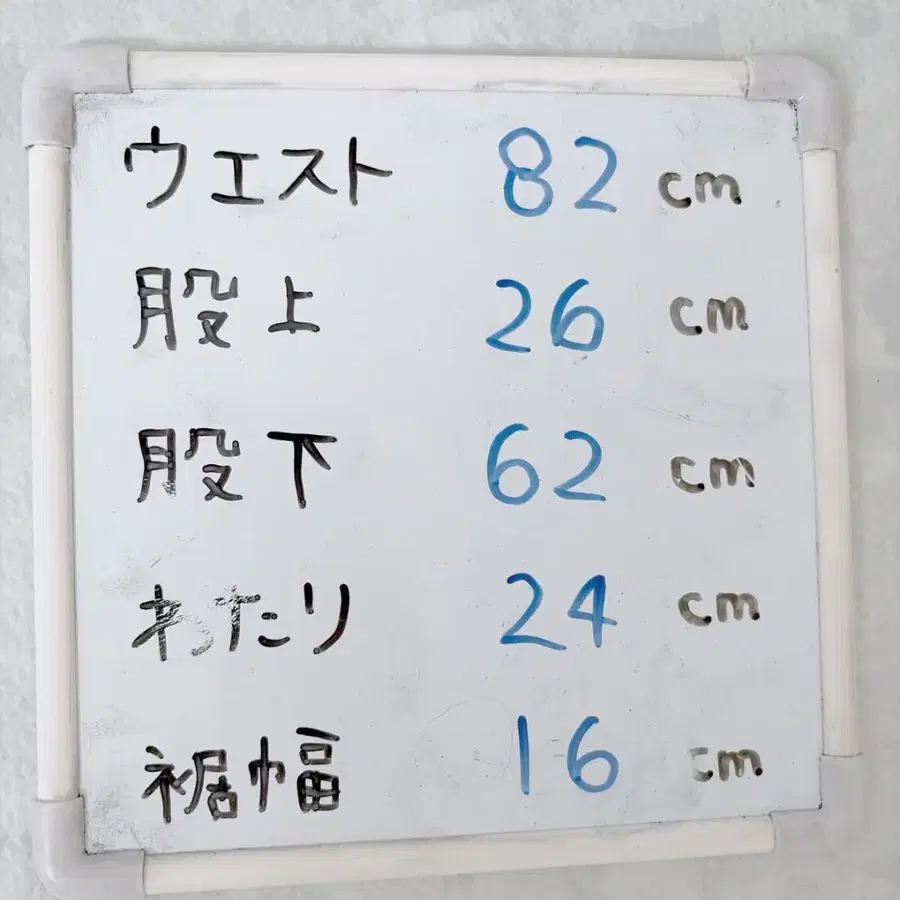 ウエスト 82 cm
股上 26 cm
股下 62 cm
わたり 24 cm
裾幅 16 cm